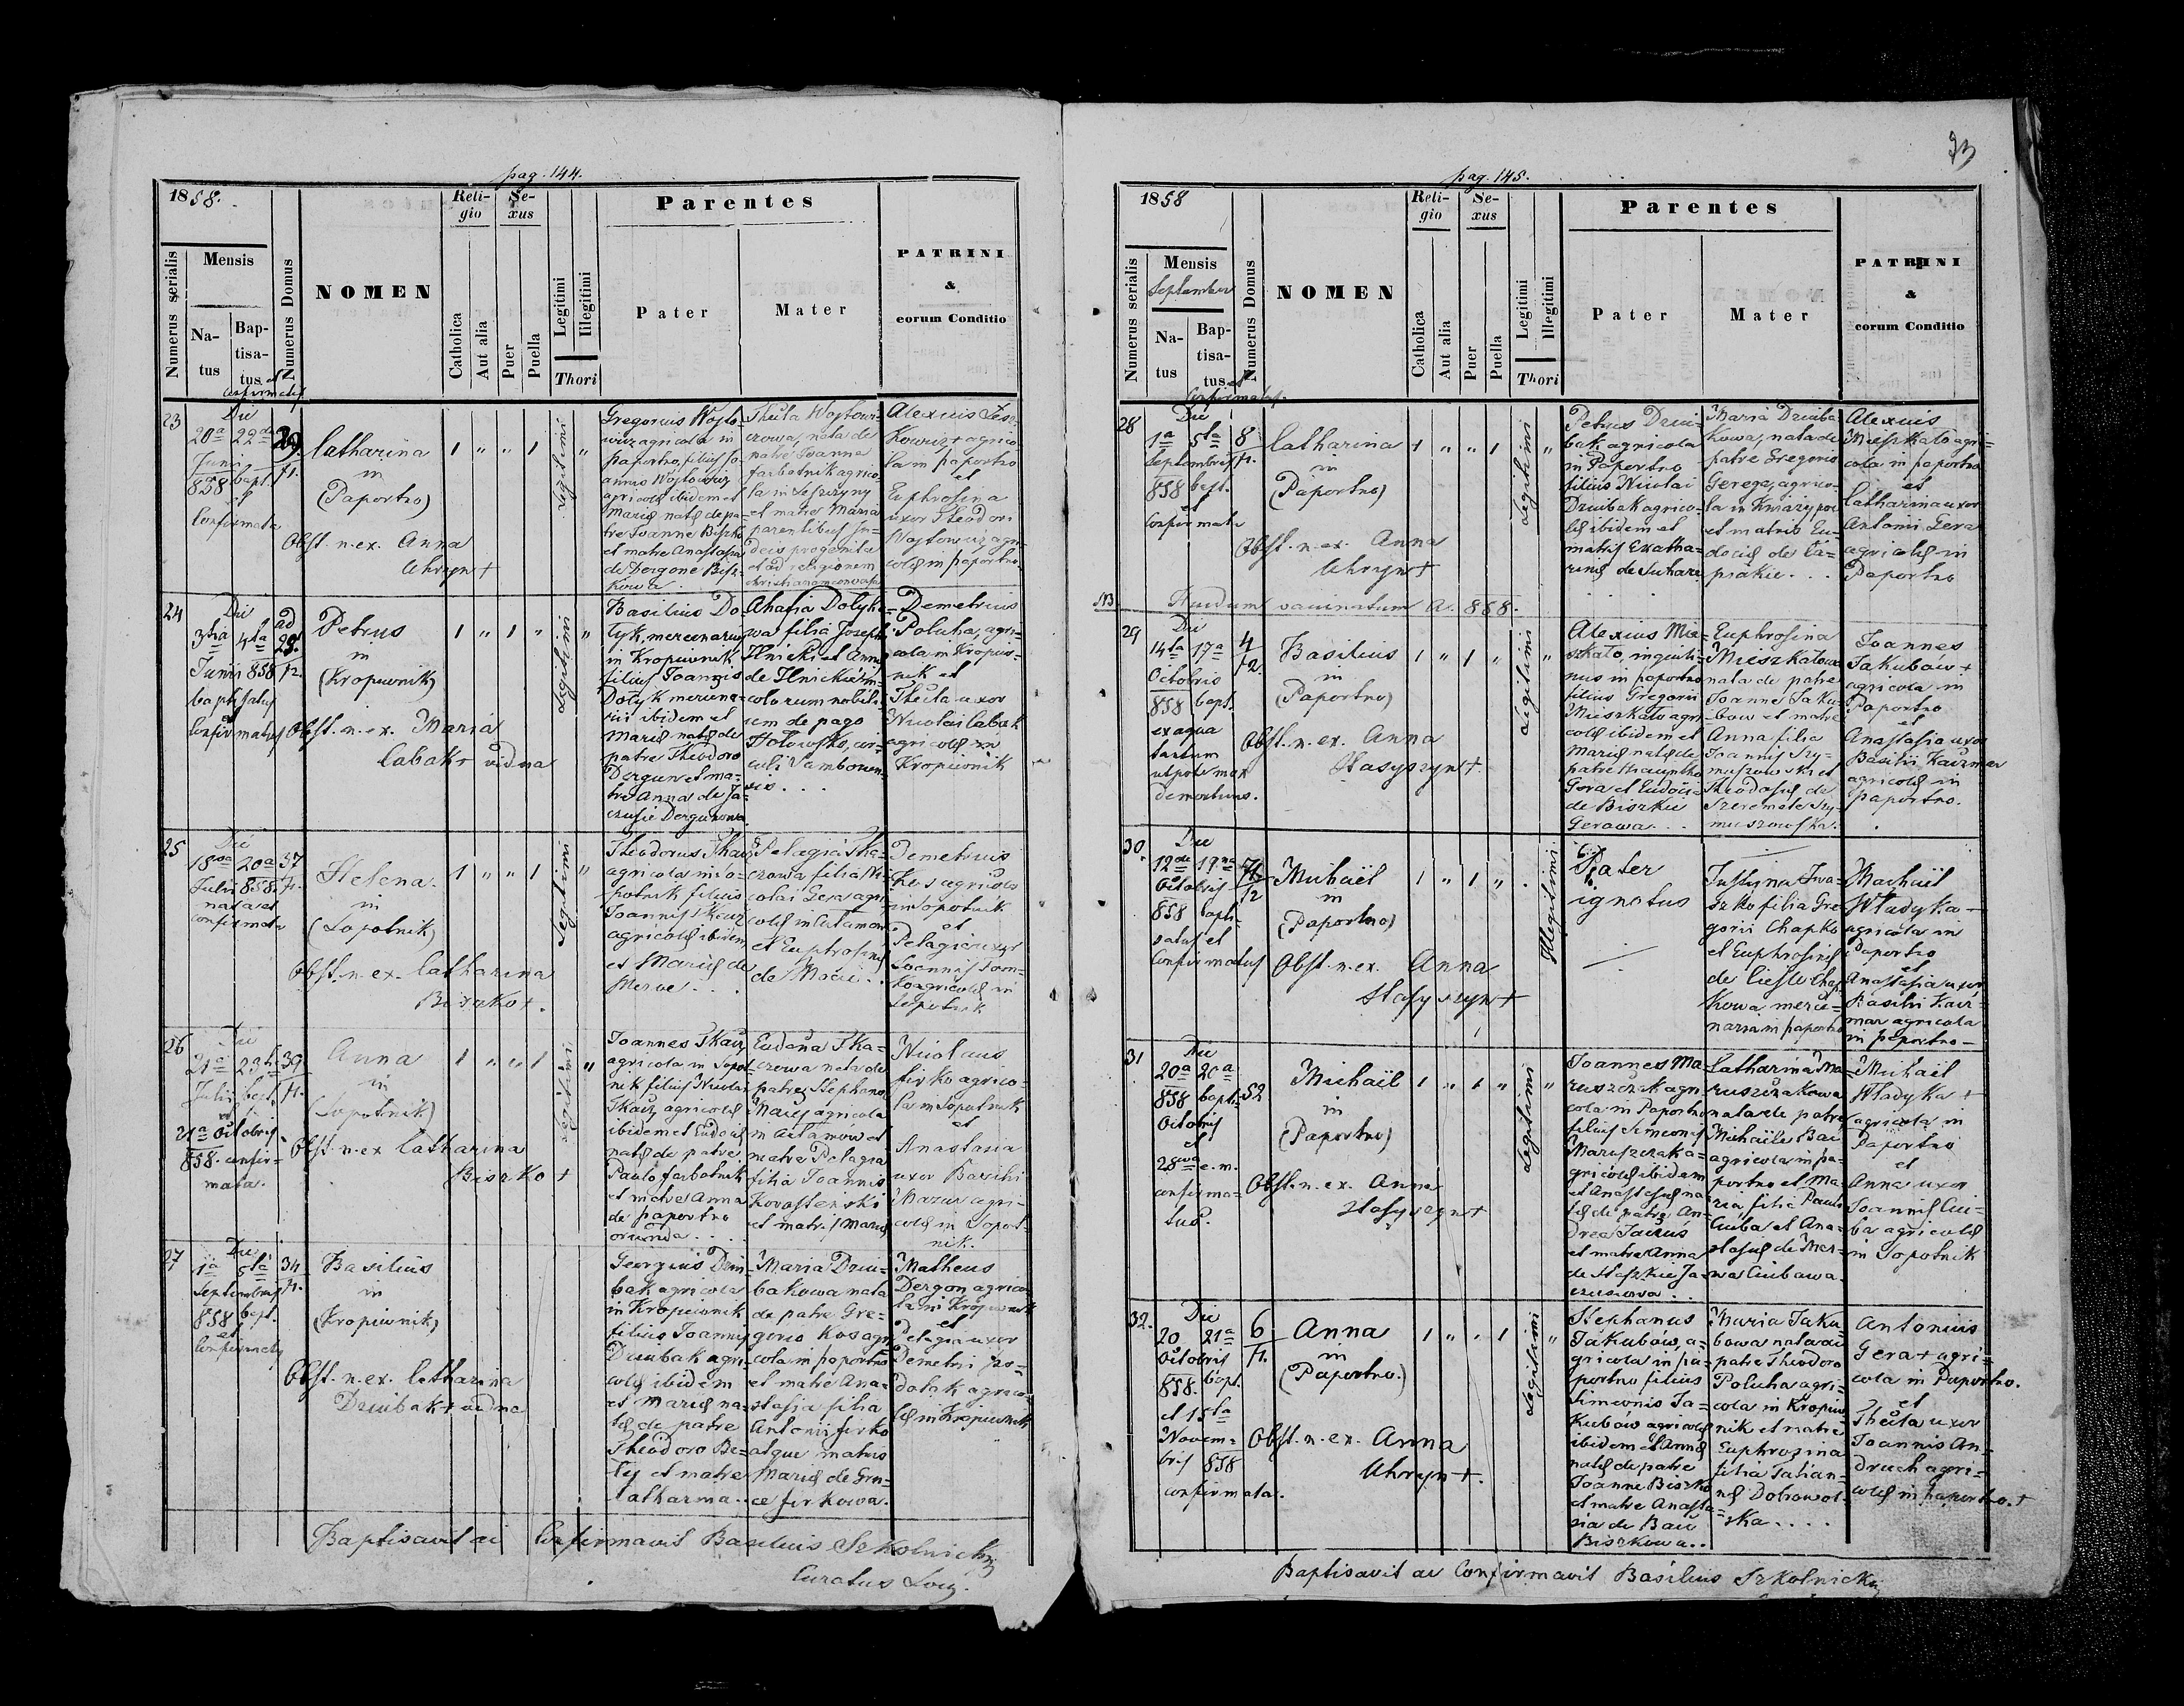 pag. 144.
1858.
Numerus serialis
Mensis
Natus
Baptisatus et
confirmatus
Numerus Domus
NOMEN
Religio
Catholica
Aut alia
Sexus
Puer
Puella
Legitimi
Illegitimi
Thori
Parentes
Pater
Mater
PATRINI
&
eorum Conditio
23
Die
20a 22da
Junii
858 bapt.
et
Confirmata
29.
Catharina
in
(Paportno)
Obst. n. ex. Anna
Uhryn +
1 " " 1
Legitimi
"
Gregorius Wojto-
wicz agricola in
paportno, filius Jo-
annis Wojtowicz
agricolæ ibidem et
Mariæ natæ de pa-
tre Joanne Biszko
et matre Anastasia
de Dergone Bisz-
kowa.
Thecla Wojtowi-
czowa, nata de
patre Joanne
farbotnik agrico-
la in Leszczyny
et matre Maria
parentibus Ju-
deis progenita
et ad religionem
christianam conversa
Alexius Lesz-
kowicz + agrico-
la in paportno
et
Euphrosina
uxor Theodori
Wojtowicz agri-
colæ in paportno.
24
Die
3tia 4ta
Junii 858
baptisatus
et
Confirmatus
ad
29.
Petrus
in
(Kropiwnik)
Obst. n. ex. Maria
Cabak + vidua
1 " 1 "
Legitimi
"
Basilius Do-
tyk, mercenarius
in Kropiwnik
filius Joannis
Dotyk mercena-
rii ibidem et
Mariæ natæ de
patre Theodoro
Dergun et ma-
tre Anna de Ja-
czusie Dergunowa.
Ahafia Dotyk-
wa filia Josephi
Ilnicki et Annæ
de Ilnickie in-
colarum nobili-
um de pago
Hołowsko, cir-
culi Samborien-
sis . . .
Demetrius
Poluha, agri-
cola in Kropiw-
nik et
Thecla uxor
Nicolai Cabak
agricolæ in
Kropiwnik
25
Die
18va 20a
Julii 858.
nata et
confirmata
37
Helena.
in
(Sopotnik)
Obst. n. ex. Catharina
Biszko +.
1 " " 1
Legitimi
"
Theodorus Tkacz
agricola in So-
potnik filius
Joannis Tkacz
agricolæ ibidem
et Mariæ de
Merve . . .
Pelagia Tka-
czowa filia Ni-
colai Gera agri-
colæ in Artamow
et Euphrosinæ
de Macie . .
Demetrius
Kus agricola
in Sopotnik
et
Pelagia uxor
Joannis Tom-
ko agricolæ in
Sopotnik
26
Die
21a 23tia
Julii bapt.
et
21a Octobris
858. confir-
mata.
39
Anna
in
(Sopotnik)
Obst. n. ex Catharina
Biszko +
1 " " 1
Legitimi
"
Joannes Tkacz
agricola in Sopot-
nik filius Nicolai
Tkacz agricolæ
ibidem et Eudociæ
natæ de patre
Paulo farbotnik
et matre Anna
de paportno
oriunda . . . .
Eudocia Tka-
czowa nata de
patre Stephano
Maciej agricola
in Artamów et
matre Pelagia
filia Joannis
Korostenski
et matris Mariæ
Nicolaus
firko agrico-
la in Sopotnik
et
Anastasia
uxor Basilii
Mazur agri-
colæ in Sopot-
nik.
27
Die
1a 5ta
Septembris
858 bapt.
et
Confirmatus
34
Basilius
in
(Kropiwnik)
Obst. n. ex. Catharina
Dziubak + vidua
Georgius Dziu-
bak agricola
in Kropiwnik
filius Joannis
Dziubak agri-
colæ ibidem
et Mariæ na-
tæ de patre
Theodoro Be-
ley et matre
Catharina . .
Maria Dziu-
bakowa nata
de patre Gre-
gorio Kos agri-
cola in paportno
et matre Ana-
stasia filia
Antonii firko
atque matris
Mariæ de Gru-
ce firkowa.
Matheus
Dergon agrico-
la in Kropiwnik
et
Pelagia uxor
Demetrii po-
dolak agrico-
læ in Kropiwnik
Baptisavit ac Confirmavit Basilius Szkolnicky
Curatus Loci.
pag. 145.
1858
Numerus serialis
Mensis
September
Natus
Baptisatus et
Confirmatus.
Numerus Domus
NOMEN
Religio
Catholica
Aut alia
Sexus
Puer
Puella
Legitimi
Illegitimi
Thori
Parentes
Pater
Mater
PATRINI
&
eorum Conditio
28
Die
1a 5ta
Septembris
858 bapt.
et
Confirmata
8
Catharina
in
(Paportno)
Obst. n. ex. Anna
Uhryn +
1 " " 1
Legitimi
"
Petrus Dziu-
bak agricola
in Paportno
filius Nicolai
Dziubak agrico-
læ ibidem et
matris Excatha-
rinæ de Suhare
Maria Dziuba-
kowa, nata de
patre Gregorio
Gerega, agrico-
la in Kniażypol
et matris Eu-
dociæ de Ca-
prakie . . .
Alexius
Mieszkało agri-
cola in paportno
et
Catharina uxor
Antonii Gera
agricolæ in
Paportno
NB. Nudum vaccinatum A. 858.
29
Die
14ta 17a
Octobris
858 bapt.
ex aqua
tantum
utpote mox
demortuus.
4
12.
Basilius
in
(Paportno)
Obst. n. ex. Anna
Stasyszyn +.
1 " 1 "
Legitimi
"
Alexius Mie-
szkało, inquili-
nus in paportno
filius Gregorii
Mieszkało agri-
colæ ibidem et
Mariæ natæ de
patre Hawrylko
Gera et Eudoci-
de Biszkie
Gerawa . . .
Euphrosina
Mieszkałowa
nata de patre
Joanne Jaku-
bow et matre
Anna filia
Joannis Szy-
muszowski et
Theodosiæ de
Szeremete Szy-
muszowska.
Joannes
Jakubów +
agricola in
Paportno
et
Anastasia uxor
Basilii Kaczmar
agricolæ in
paportno.
30.
Die
12de 19na
Octobris
858 bapti-
satus et
Confirmatus
Michaël
in
(Paportno)
Obst. n. ex. Anna
Stasyszyn +
1 " 1 " .
Illegitimi
Pater
ignotus
Justyna Iwa-
szko filia Gre-
gorii Chapko
et Euphrosinæ
de Ciesle Chap-
kowa merce-
naria in paportno
Machaïl
Władyka -
agricola in
Paportno
et
Anastasia uxor
Basilii Kacz-
mar agricola
in paportno -
31
Die
20a 20a
858 bapti-
Octobris
et
28va e. m.
confirma-
tus.
52
Michaïl
in
(Paportno)
Obst. n. ex. Anna
Stasyszyn +
1 " 1 "
Legitimi
"
Joannes Ma-
ruszczak agri-
cola in Paportno
filius Simeonis
Maruszczak a-
gricolæ ibidem
et Anastasiæ na-
tæ de patre An-
drea Jaczus
et matre Anna
de Staszkie Ja-
czusowa . .
Catharina Ma-
ruszczakowa
nata de patre
Michaële Bac
agricola in pa-
portno et Ma-
ria filia Pauli
Ciuba et Ana-
stasiæ de Mer-
wa Ciubawa.
Michaël
Władyka +
agricola in
Paportno
et
Anna uxor
Joannis Ciu-
ba agricolæ
in Sopotnik
32.
Die
20 21a
Octobris
858. bapt.
et 15ta
Novem-
bris 858
confirmata.
6
Anna
in
(Paportno.)
Obst. n. ex. Anna
Uhryn +.
1 " " 1
Legitimi
"
Stephanus
Jakubów, a-
gricola in pa-
portno filius
Simeonis Ja-
kubów agricolæ
ibidem et Annæ
natæ de patre
Joanne Biszko
et matre Anasta-
sia de Bacu
Biszkowa . .
Maria Jaku-
bowa nata de
patre Theodoro
Poluha agri-
cola in Kropiw-
nik et matre
Euphrozina
filia Tatian-
næ Dobrowol-
ska . . . .
Antonius
Gera + agri-
cola in Paportno.
et
Thecla uxor
Joannis An-
druch agri-
colæ in paportno. +
Baptisavit ac Confirmavit Basilius Szkolnicky